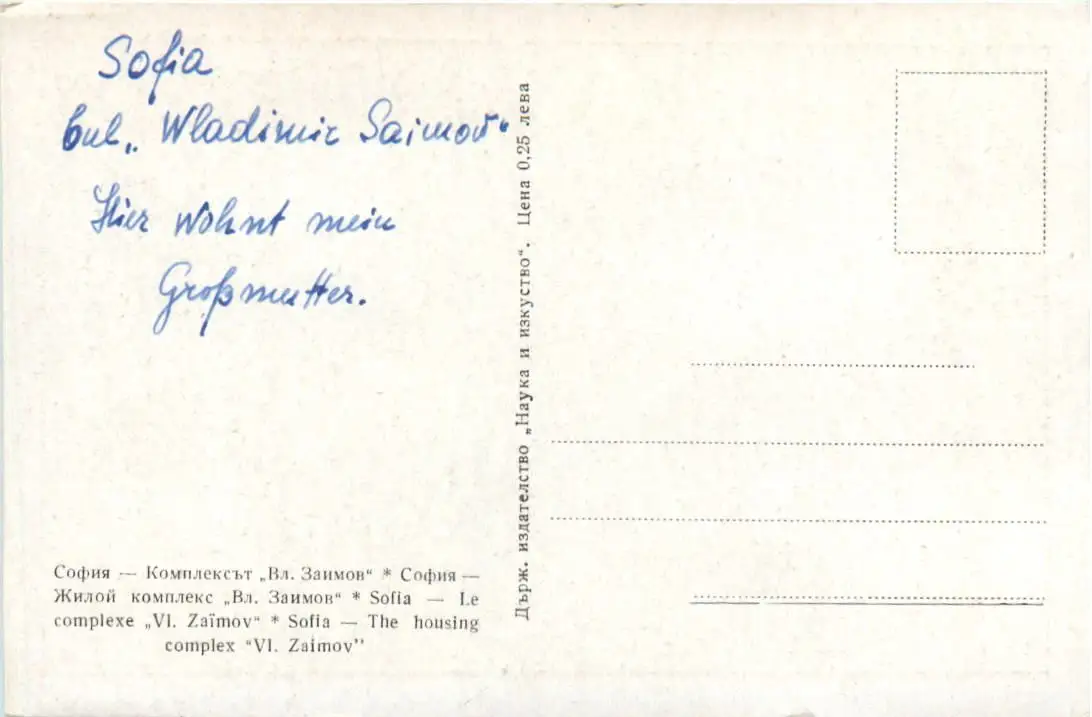 Sofia
bul. „Wladimir Saimov“
Hier wohnt mein
Großmutter.
София — Комплексът „Вл. Заимов“ * София —
Жилой комплекс „Вл. Заимов“ * Sofia — Le
complexe „Vl. Zaïmov“ * Sofia — The housing
complex “Vl. Zaimov”
Държ. издателство „Наука и изкуство“. Цена 0,25 лева